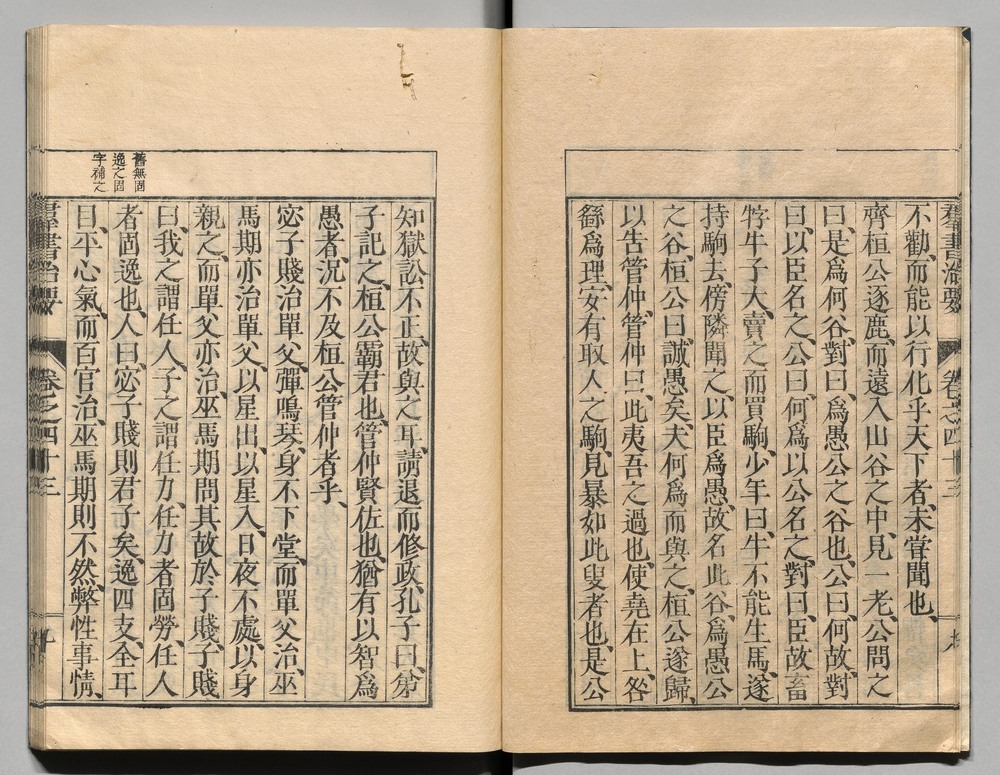 羣書治要　卷之四十三
不勸、而能以行化乎天下者、未嘗聞也、
齊桓公逐鹿、而遠入山谷之中、見一老、公問之
曰、是爲何谷、對曰、爲愚公之谷也、公曰、何故、對
曰、以臣名之、公曰、何爲以公名之、對曰、臣故畜
牸牛、子大、賣之而買駒、少年曰、牛不能生馬、遂
持駒去、傍隣聞之、以臣爲愚、故名此谷、爲愚公
之谷、桓公曰、誠愚矣、夫何爲而與之、桓公遂歸、
以告管仲、管仲曰、此夷吾之過也、使堯在上、咎
繇爲理、安有取人之駒、見暴如此叟者也、是公
知獄訟不正、故與之耳、請退而修政、孔子曰、弟
子記之、桓公霸君也、管仲賢佐也、猶有以智爲
愚者、況不及桓公管仲者乎、
宓子賤治單父、彈鳴琴、身不下堂、而單父治、巫
馬期亦治單父、以星出、以星入、日夜不處、以身
親之、而單父亦治、巫馬期問其故於子賤、子賤
曰、我之謂任人、子之謂任力、任力者固勞、任人
者固逸也、人曰、宓子賤則君子矣、逸四支、全耳
目、平心氣、而百官治、巫馬期則不然、弊性事情、
舊無固
逸之固
字補之
羣書治要　卷之四十三　十